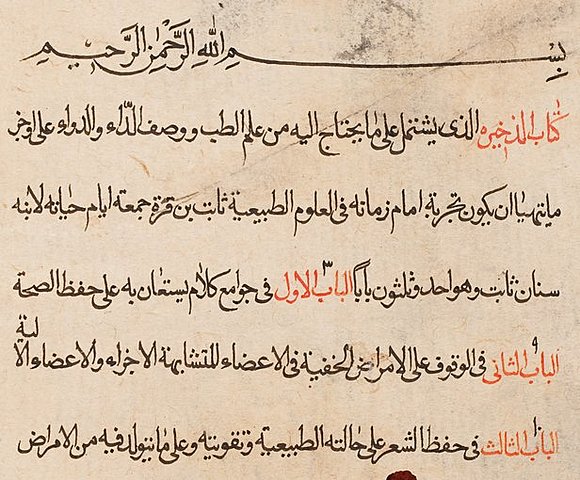 بسم الله الرحمن الرحيم
كتاب الذخيره الذى يشتمل على ما يحتاج اليه من علم الطب ووصف الداء والدواء على اوجز
ما يتهيا ان يكون تجربة امام زمانه فى العلوم الطبيعية ثابت بن قرة جمعته ايام حياته لابنه
سنان ثابت وهو احد وثلثون بابا الباب الاول ٣ فى جوامع كلام يستعان به على حفظ الصحة
الباب الثانى ٩ فى الوقوف على الامراض الخفية فى الاعضاء المتشابهة الاجزاء والاعضاء الالية
الباب الثالث ١٠ فى حفظ الشعر على حالته الطبيعية وتقويته وعلى ما يتولد فيه من الامراض